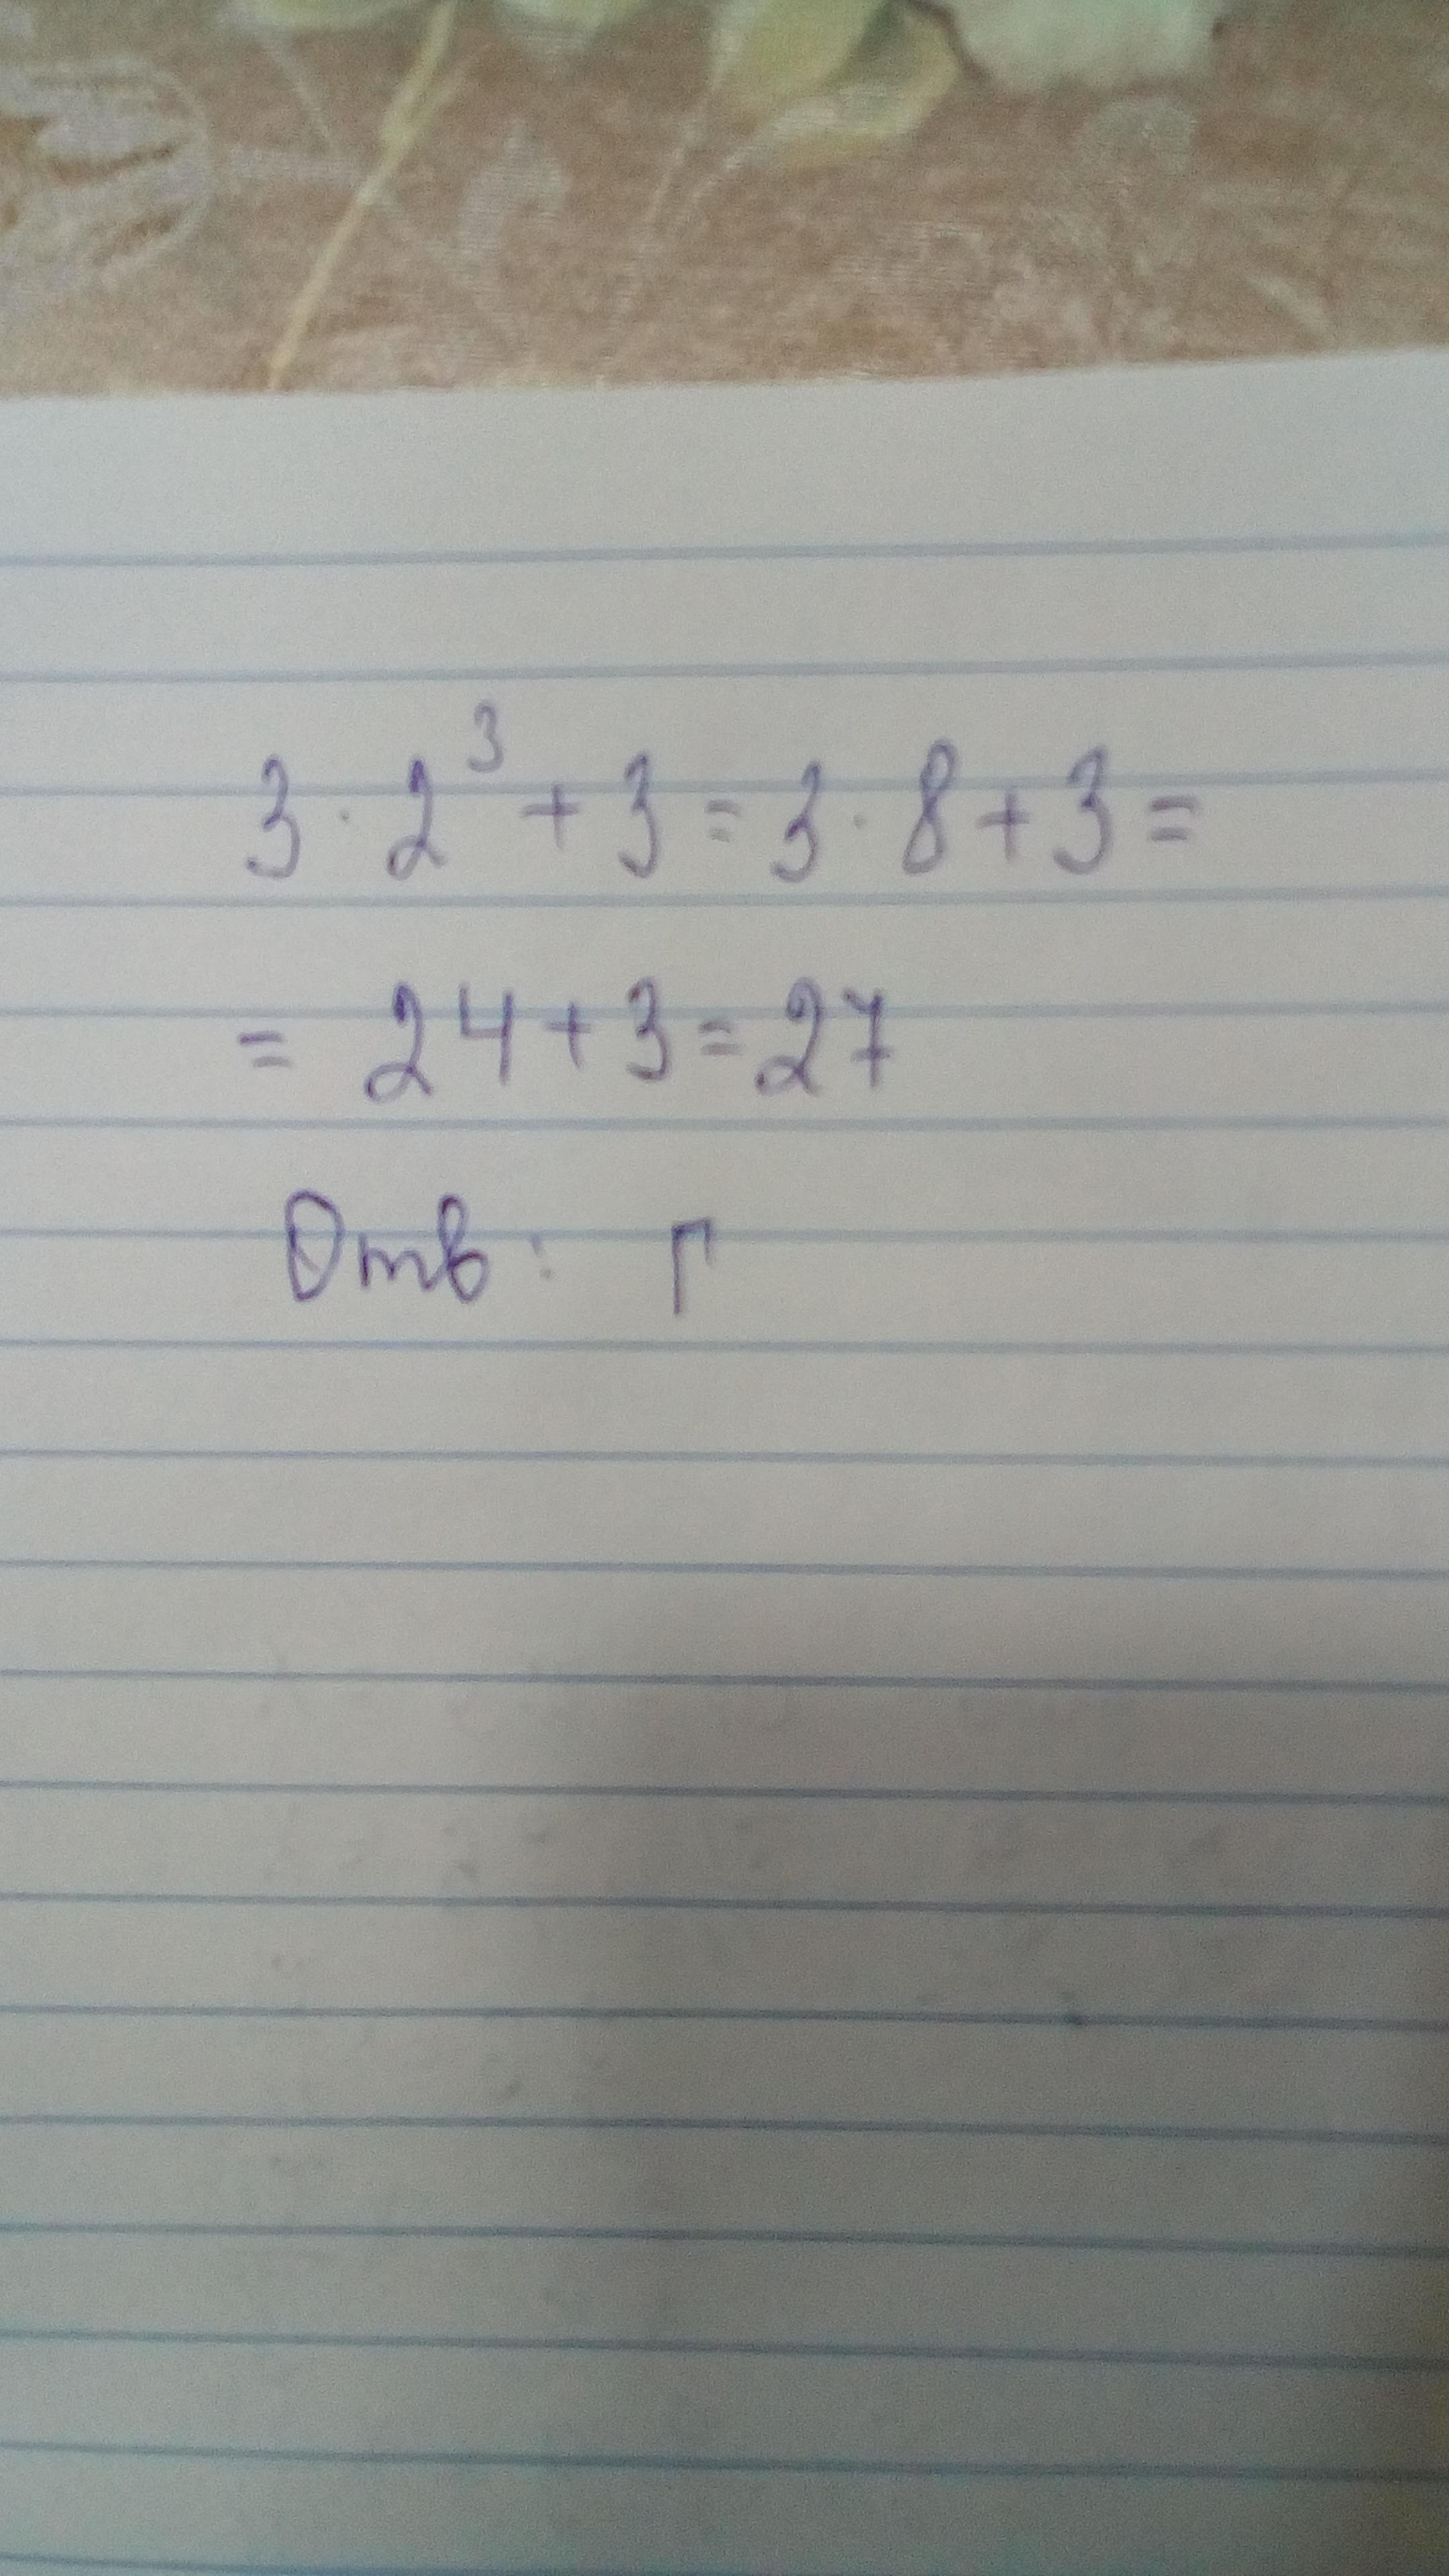 3 · 2³ + 3 = 3 · 8 + 3 =
= 24 + 3 = 27
Отв: Г